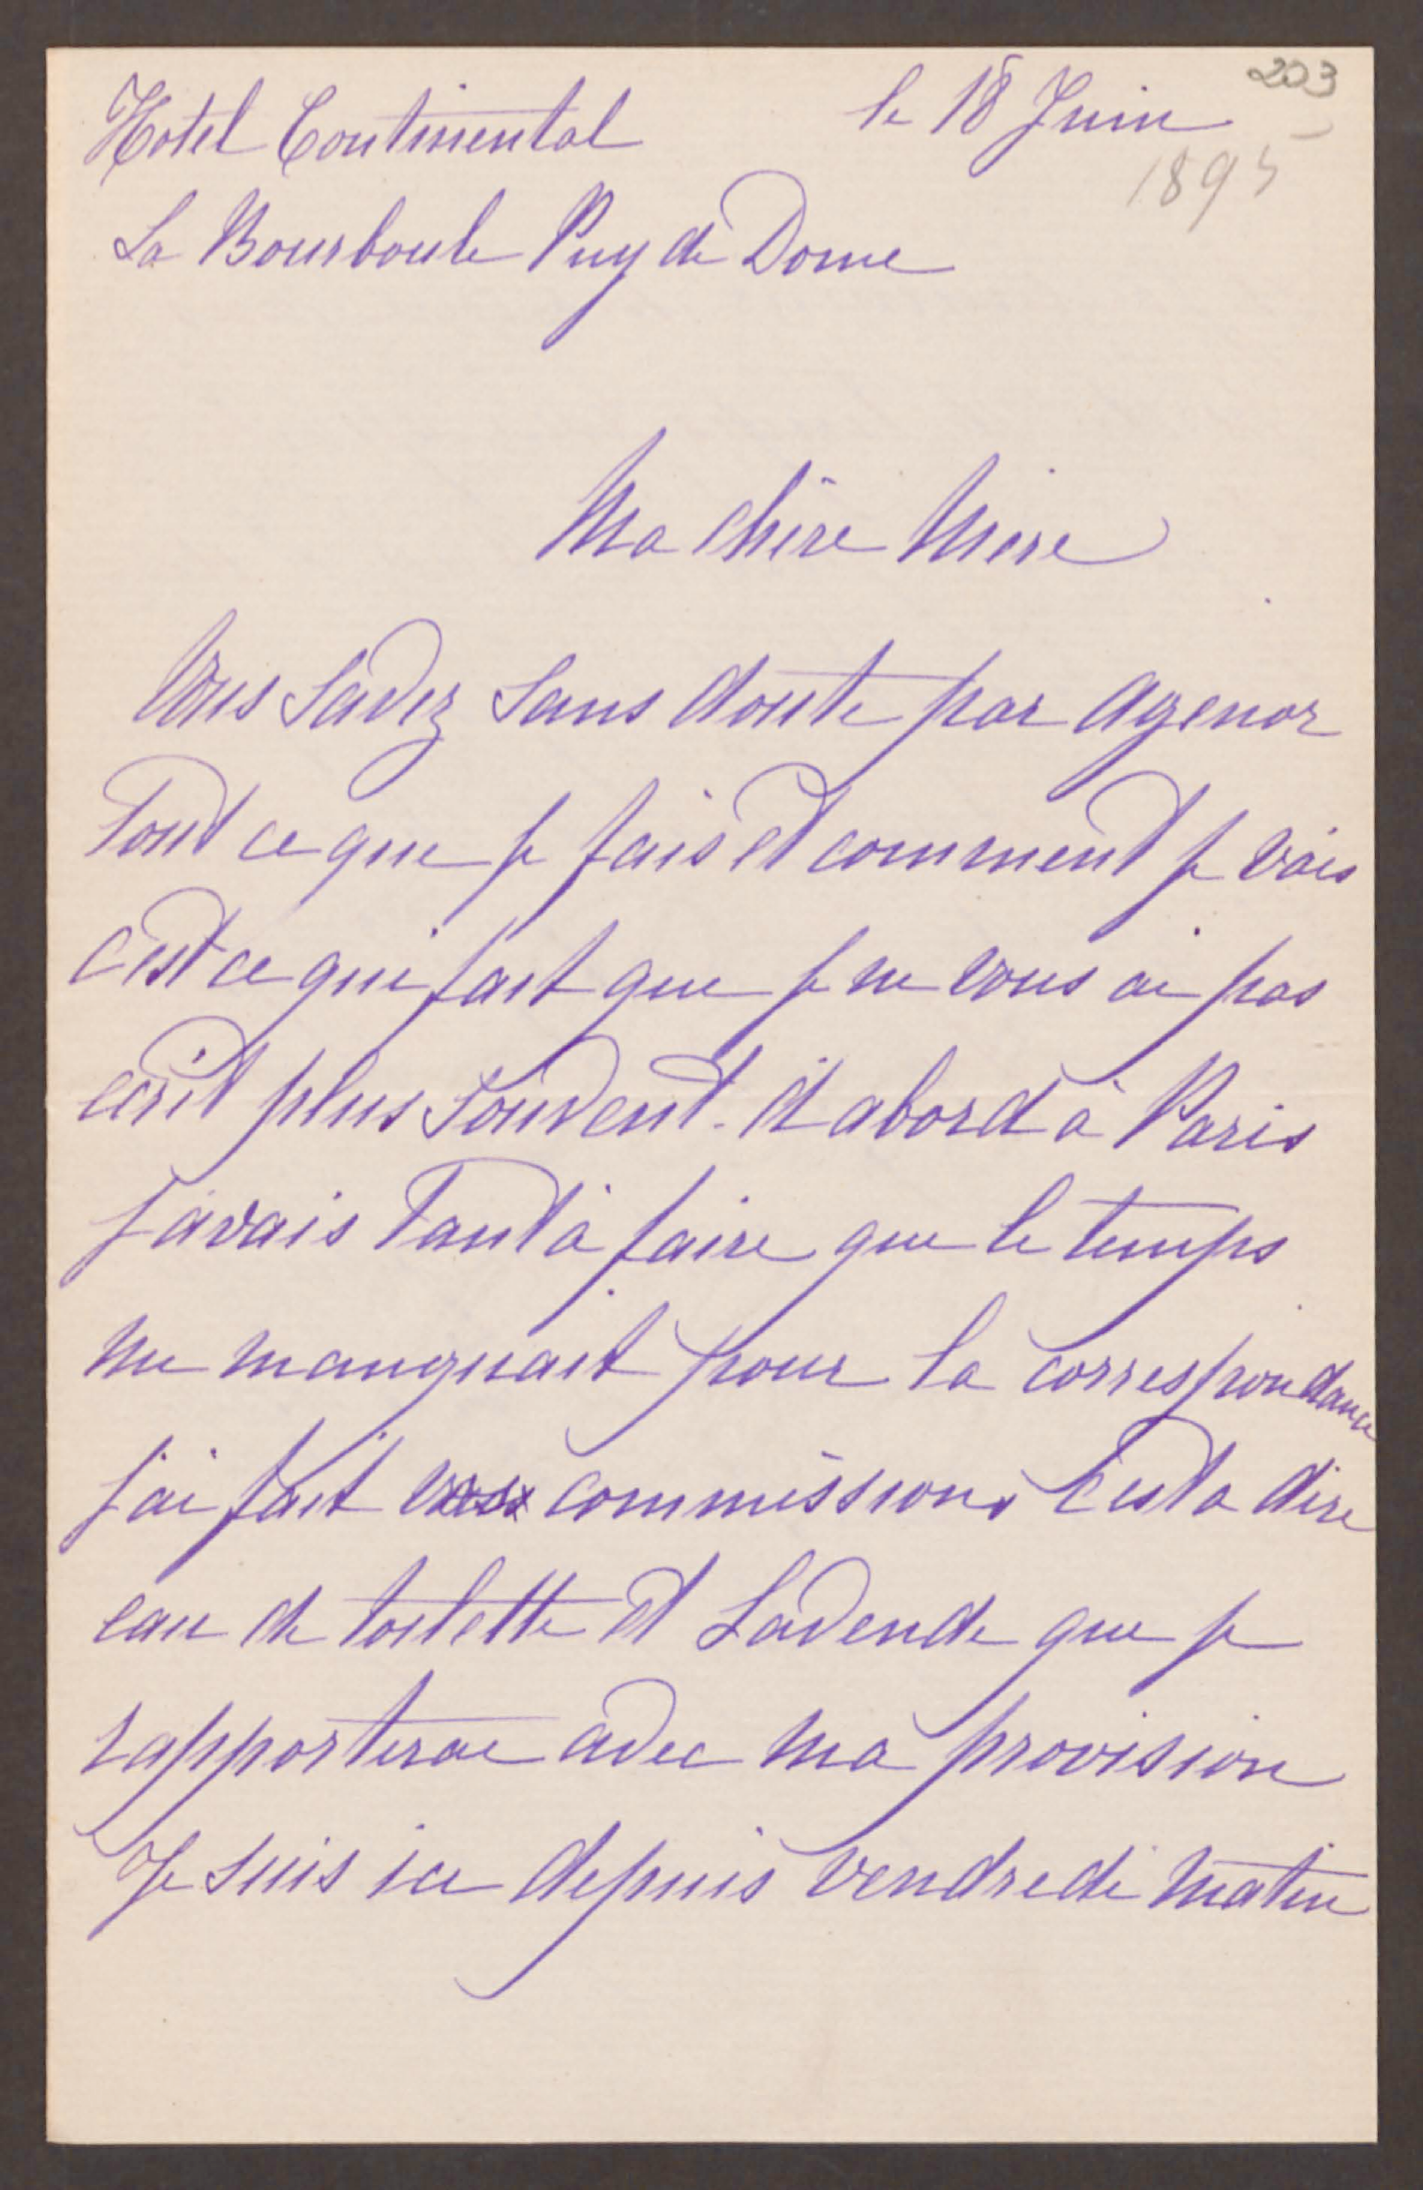 203
Hotel Continental le 18 Juin
1895
La Bourboule Puy de Dome
Ma chère Mere
Vous savez sans doute par Agenor
Tout ce que je fais et comment je vais
c'est ce qui fait que je ne vous ai pas
ecrit plus souvent. d'abord à Paris
j'avais Tant à faire que le temps
me manquait pour la correspondance
j'ai fait commissions c'est a dire
eau de toilette et Lavende que je
rapporterai avec ma provision
Je suis ici depuis vendredi matin